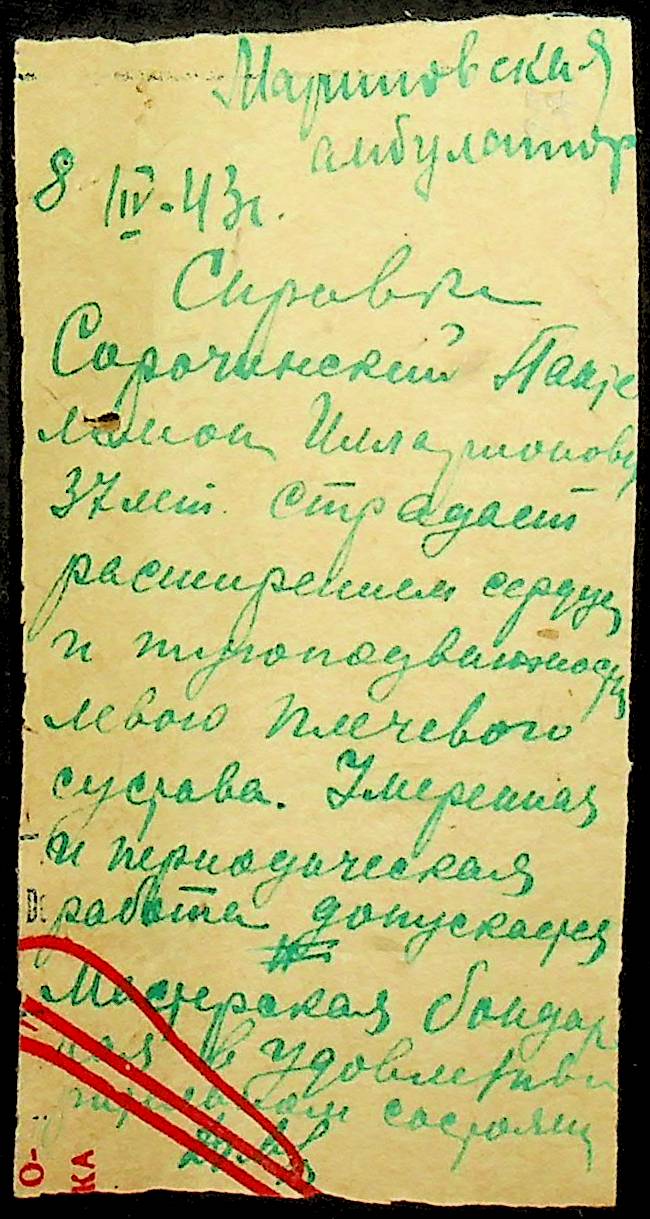 Мариновская
амбулатор
8 IV-43г.
Справка
Сорочинский Панте
лимон Иллариионову
37 лет. страдает
расширением сердца
и тугоподвижности
левого плечевого
сустава. Умеренная
и периодическая
работа допускается
Мастерская бондар
ная в удовлетвори
тельном состоянии
О-
КА